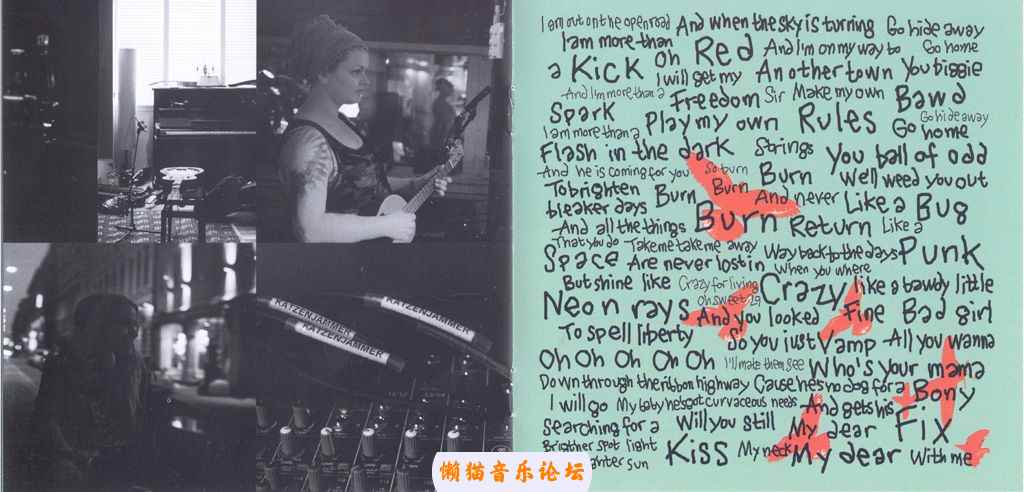 KATZENJAMMER
KATZENJAMMER
KATZENJAMMER
I am out on the open road And when the sky is turning Go hide away
I am more than Red And I'm on my way to Go home
a Kick oh I will get my Another town You biggie
And I'm more than a Freedom Sir Make my own Bawd
Spark Play my own Rules Go hide away
I am more than a Go home
Flash in the dark Strings You ball of odd
And he is coming for you So burn Burn Well weed you out
To brighten Burn Burn And never Like a Bug
bleaker days
And all the things Burn Return Like a
That you do Take me take me away Way back to the days Punk
Space Are never lost in When you where
But shine like Crazy for living Crazy like a bawdy little
Neon rays And you looked Fine Bad girl
To spell liberty So you just Vamp All you wanna
Oh Oh Oh Oh Oh I'll make them see Who's your mama
Down through the ribbon highway Cause he's no dog for a Bony
I will go My baby he's got curvaceous needs And gets his
searching for a Will you still My dear Fix
Brigther spot light Kiss My neck My dear With me
sun
懒猫音乐论坛